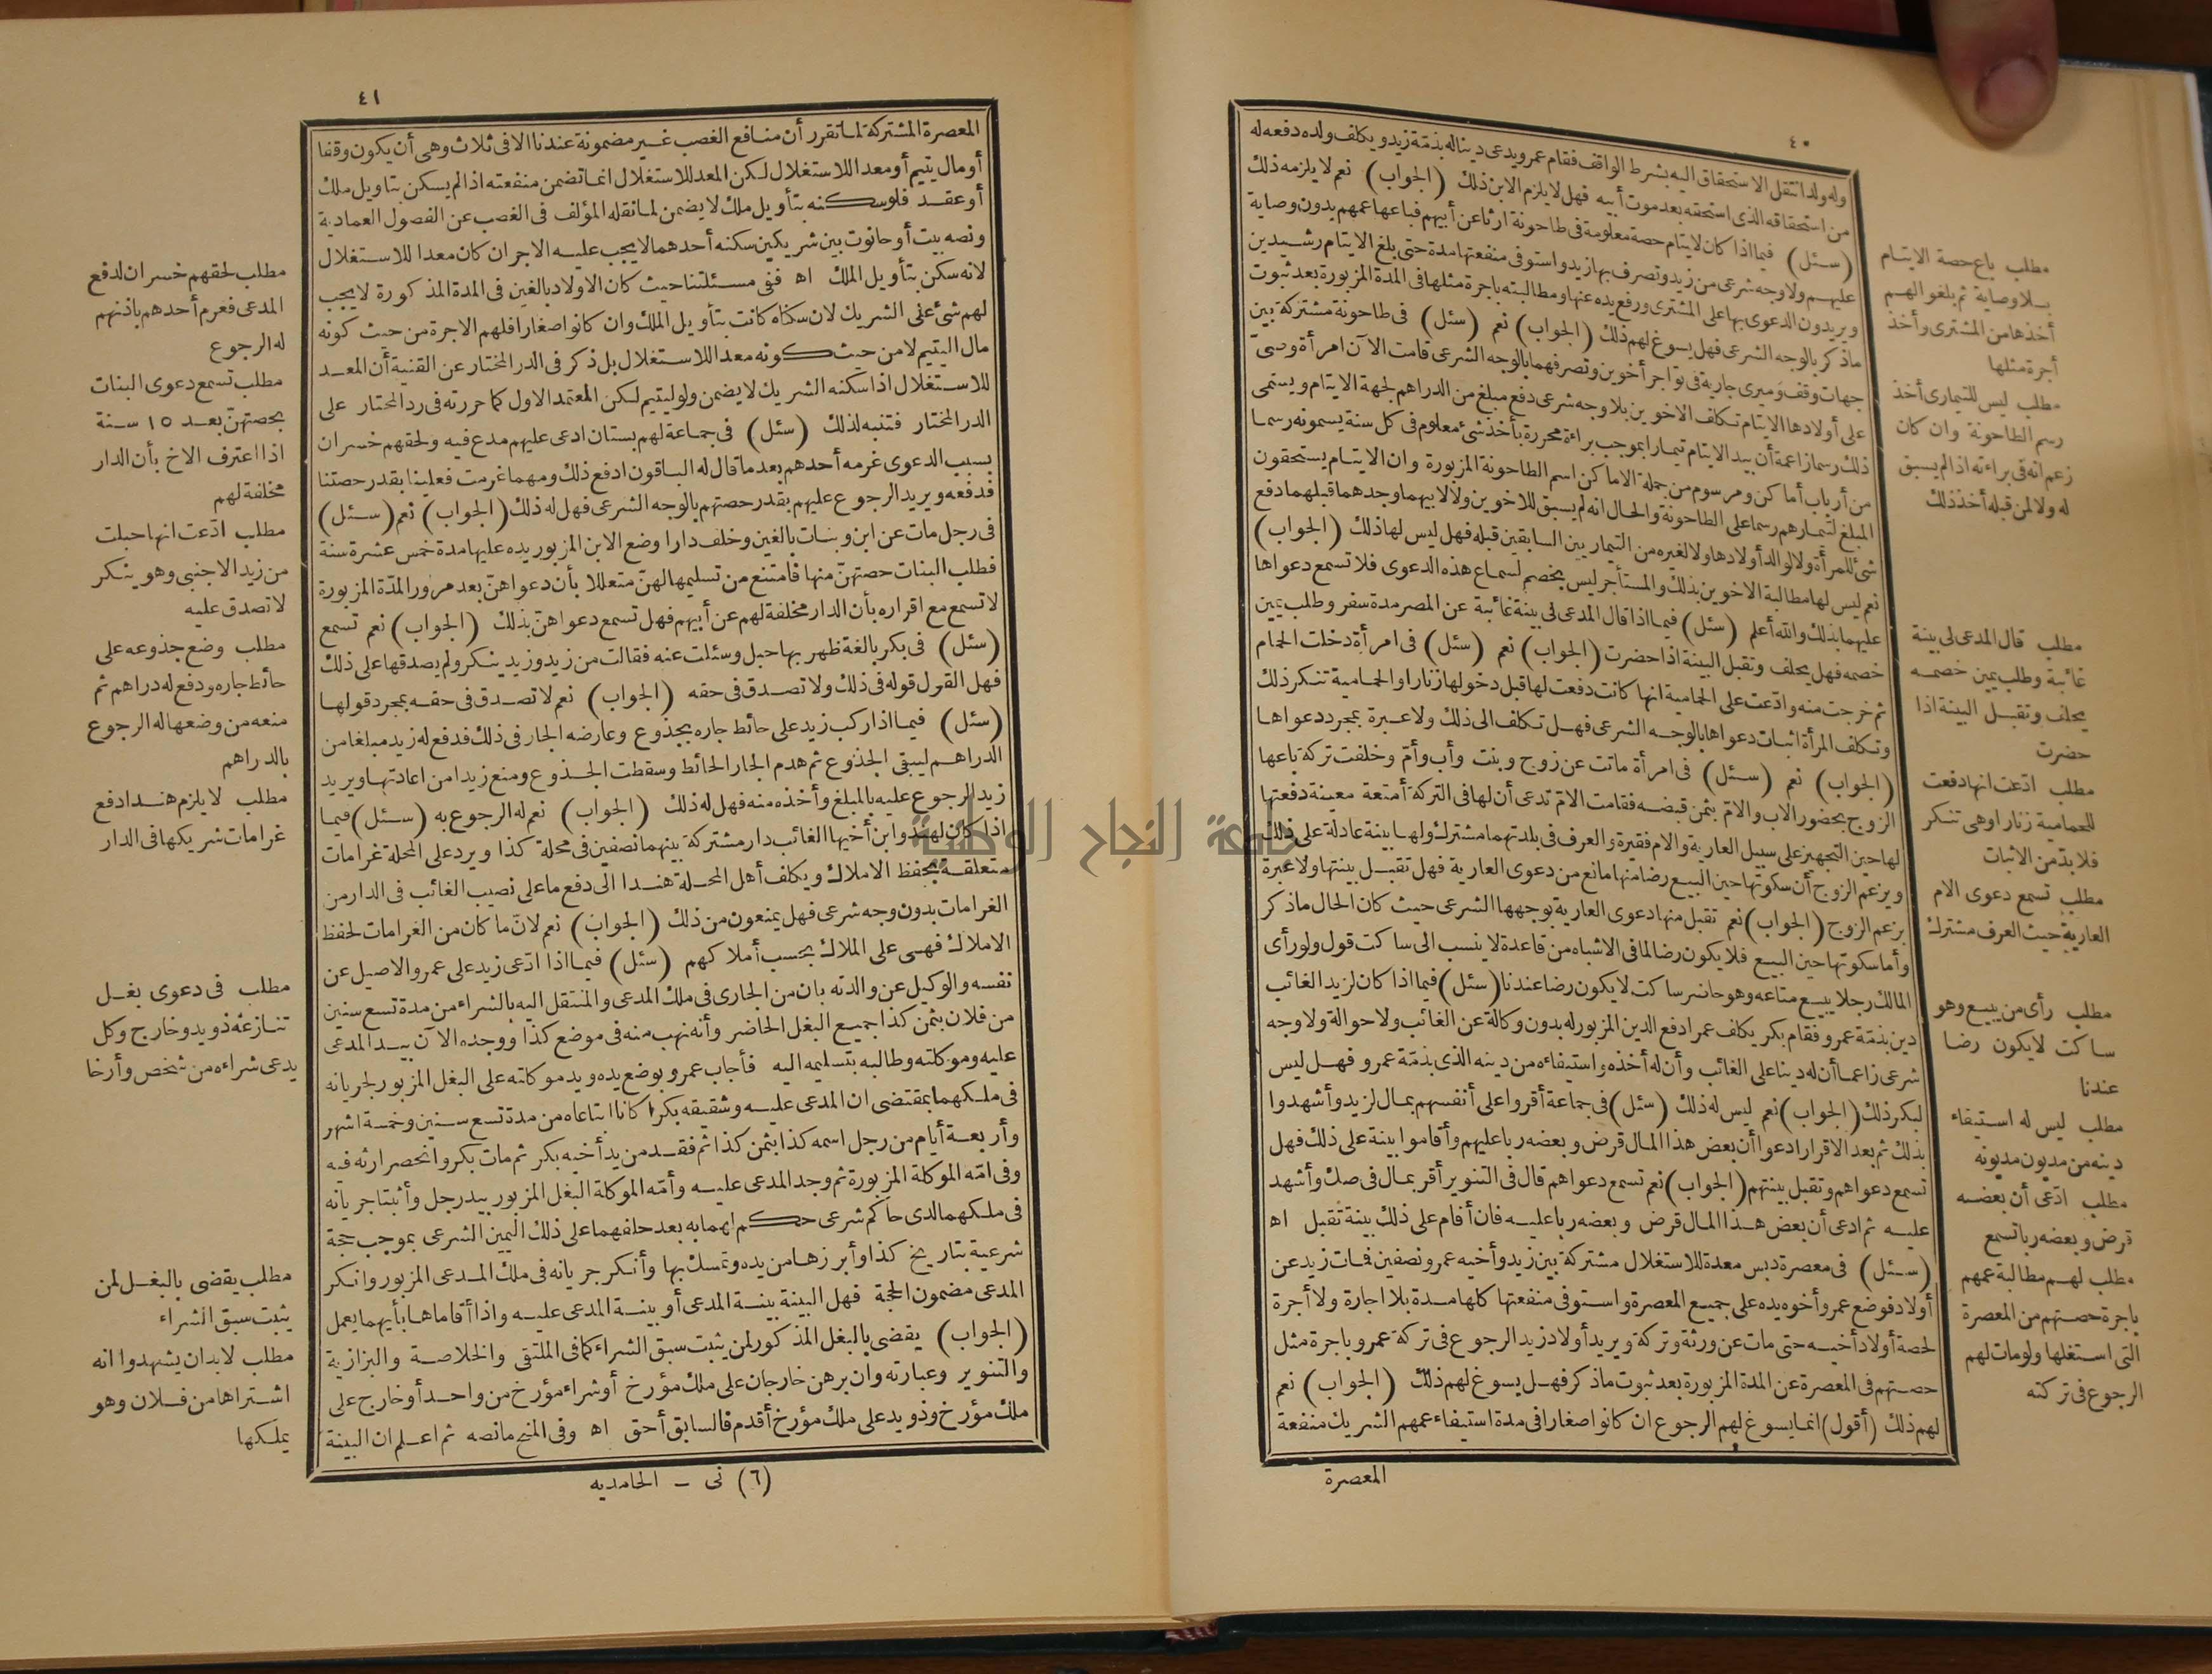 ٤٠
وله ولد انتقل الاستحقاق اليه بشرط الواقف فقام عمرو يدعى دينا له بذمة زيد ويكلف ولده دفعه له
من استحقاقه الذى استحقه بعد موت أبيه فهل لا يلزم الابن ذلك (الجواب) نعم لا يلزمه ذلك
(سئل) فيما اذا كان لايتام حصة معلومة فى طاحونة ارثا عن أبيهم فباعها عمهم بدون وصاية
عليهم ولا وجه شرعى من زيد وتصرف بها زيد واستوفى منفعتها مدة حتى بلغ الايتام رشيدين
ويريدون الدعوى بها على المشترى ورفع يده عنها ومطالبته باجرة مثلها فى المدة المزبورة بعد ثبوت
ماذكر بالوجه الشرعى فهل يسوغ لهم ذلك (الجواب) نعم (سئل) فى طاحونة مشتركة بين
جهات وقف وميرى جارية فى تواجر أخوين وتصرفهما بالوجه الشرعى قامت الآن امرأة وصى
على أولادها الايتام تكلف الاخوين بلا وجه شرعى دفع مبلغ من الدراهم لجهة الايتام ويسمى
ذلك رسما زاعمة أن بيد الايتام تيمارا بموجب براءة محررة بأخذ شئ معلوم فى كل سنة يسمونه رسما
من أرباب أماكن ومرسوم من جملة الاماكن اسم الطاحونة المزبورة وان الايتام يستحقون
المبلغ لتيمارهم رسما على الطاحونة والحال انه لم يسبق للاخوين ولا لابيهما وجدهما قبلهما دفع
شئ للمرأة ولا لوالد أولادها ولا لغيره من التيماريين السابقين قبله فهل ليس لها ذلك (الجواب)
نعم ليس لها مطالبة الاخوين بذلك والمستأجر ليس بخصم لسماع هذه الدعوى فلا تسمع دعواها
عليهما بذلك والله أعلم (سئل) فيما اذا قال المدعى لى بينة غائبة عن المصر مدة سفر وطلب يمين
خصمه فهل يحلف وتقبل البينة اذا حضرت (الجواب) نعم (سئل) فى امرأة دخلت الحمام
ثم خرجت منه وادّعت على الحمامية انها كانت دفعت لها قبل دخولها زنارا والحمامية تنكر ذلك
وتكلف المرأة اثبات دعواها بالوجه الشرعى فهل تكلف الى ذلك ولا عبرة بمجرد دعواها
(الجواب) نعم (سئل) فى امرأة ماتت عن زوج وبنت وأب وأمّ وخلفت تركة باعها
الزوج بحضور الاب والامّ بثمن قبضه فقامت الامّ تدعى أن لها فى التركة أمتعة معينة دفعتها
لها حين التجهيز على سبيل العارية والام فقيرة والعرف فى بلدتهما مشترك ولها بينة عادلة على ذلك
ويزعم الزوج أن سكوتها حين البيع رضا منها مانع من دعوى العارية فهل تقبل بينتها ولا عبرة
بزعم الزوج (الجواب) نعم تقبل منها دعوى العارية بوجهها الشرعى حيث كان الحال ماذكر
وأما سكوتها حين البيع فلا يكون رضا لما فى الاشباه من قاعدة لا ينسب الى ساكت قول ولو رأى
المالك رجلا يبيع متاعه وهو حاضر ساكت لا يكون رضا عندنا (سئل) فيما اذا كان لزيد الغائب
دين بذمة عمرو فقام بكر يكلف عمرا دفع الدين المزبور له بدون وكالة عن الغائب ولا حوالة ولا وجه
شرعى زاعما أن له دينا على الغائب وأن له أخذه واستيفاءه من دينه الذى بذمّة عمرو فهل ليس
لبكر ذلك (الجواب) نعم ليس له ذلك (سئل) فى جماعة أقروا على أنفسهم بمال لزيد وأشهدوا
بذلك ثم بعد الاقرار ادعوا أن بعض هذا المال قرض وبعضه ربا عليهم وأقاموا بينة على ذلك فهل
تسمع دعواهم وتقبل بينتهم (الجواب) نعم تسمع دعواهم قال فى التنوير أقر بمال فى صك وأشهد
عليه ثم ادعى أن بعض هذا المال قرض وبعضه ربا عليه فان أقام على ذلك بينة تقبل اه
(سئل) فى معصرة دبس معدة للاستغلال مشتركة بين زيد وأخيه عمرو نصفين فمات زيد عن
أولاد فوضع عمرو أخوه يده على جميع المعصرة واستوفى منفعتها كلها مدة بلا اجارة ولا أجرة
لحصة أولاد أخيه حتى مات عن ورثة وتركة ويريد أولاد زيد الرجوع فى تركة عمرو باجرة مثل
حصتهم فى المعصرة عن المدة المزبورة بعد ثبوت ماذكر فهل يسوغ لهم ذلك (الجواب) نعم
لهم ذلك (أقول) انما يسوغ لهم الرجوع ان كانوا صغارا فى مدة استيفاء عمهم الشريك منفعة
المعصرة
مطلب باع حصة الايتام
بلا وصاية ثم بلغوا لهم
أخذها من المشترى وأخذ
أجرة مثلها
مطلب ليس للتيمارى أخذ
رسم الطاحونة وان كان
زعم انه فى براءته اذا لم يسبق
له ولا لمن قبله أخذ ذلك
مطلب قال المدعى لى بينة
غائبة وطلب يمين خصمه
يحلف وتقبل البينة اذا
حضرت
مطلب ادّعت انها دفعت
للحمامية زنارا وهى تنكر
فلا بدّ من الاثبات
مطلب تسمع دعوى الام
العارية حيث العرف مشترك
مطلب رأى من يبيع وهو
ساكت لا يكون رضا
عندنا
مطلب ليس له استيفاء
دينه من مديون مديونه
مطلب ادّعى أن بعضه
قرض وبعضه ربا تسمع
مطلب لهم مطالبة عمهم
باجرة حصتهم من المعصرة
التى استغلها ولو مات لهم
الرجوع فى تركته
٤١
المعصرة المشتركة لما تقرر أن منافع الغصب غير مضمونة عندنا الا فى ثلاث وهى أن يكون وقفا
أو مال يتيم أو معدا للاستغلال لكن المعد للاستغلال انما تضمن منفعته اذا لم يسكن بتاويل ملك
أو عقد فلو سكنه بتأويل ملك لا يضمن لما نقله المؤلف فى الغصب عن الفصول العمادية
ونصه بيت أو حانوت بين شريكين سكنه أحدهما لا يجب عليه الاجر ان كان معدا للاستغلال
لانه سكن بتأويل الملك اه ففى مسئلتنا حيث كان الاولاد بالغين فى المدة المذكورة لا يجب
لهم شئ عنى الشريك لان سكناه كانت بتأويل الملك وان كانوا صغارا فلهم الاجرة من حيث كونه
مال اليتيم لا من حيث كونه معدا للاستغلال بل ذكر فى الدر المختار عن القنية أن المعد
للاستغلال اذا سكنه الشريك لا يضمن ولو ليتيم لكن المعتمد الاول كما حررته فى رد المحتار على
الدر المختار فتنبه لذلك (سئل) فى جماعة لهم بستان ادعى عليهم مدع فيه ولحقهم خسران
بسبب الدعوى غرمه أحدهم بعد ما قال له الباقون ادفع ذلك ومهما غرمت فعلينا بقدر حصتنا
فدفعه ويريد الرجوع عليهم بقدر حصتهم بالوجه الشرعى فهل له ذلك (الجواب) نعم (سئل)
فى رجل مات عن ابن وبنات بالغين وخلف دارا وضع الابن المزبور يده عليها مدة خمس عشرة سنة
فطلب البنات حصتهنّ منها فامتنع من تسليمها لهنّ متعللا بأن دعواهنّ بعد مرور المدّة المزبورة
لا تسمع مع اقراره بأن الدار مخلفة لهم عن أبيهم فهل تسمع دعواهنّ بذلك (الجواب) نعم تسمع
(سئل) فى بكر بالغة ظهر بها حبل وسئلت عنه فقالت من زيد وزيد ينكر ولم يصدقها على ذلك
فهل القول قوله فى ذلك ولا تصدق فى حقه (الجواب) نعم لا تصدق فى حقه بمجرد قولها
(سئل) فيما اذا ركب زيد على حائط جاره بجذوع وعارضه الجار فى ذلك فدفع له زيد مبلغا من
الدراهم ليبقى الجذوع ثم هدم الجار الحائط وسقطت الجذوع ومنع زيدا من اعادتها ويريد
زيد الرجوع عليه بالمبلغ وأخذه منه فهل له ذلك (الجواب) نعم له الرجوع به (سئل) فيما
اذا كان لهند وابن أخيها الغائب دار مشتركة بينهما نصفين فى محلة كذا ويرد على المحلة غرامات
متعلقة بحفظ الاملاك ويكلف أهل المحلة هندا الى دفع ما على نصيب الغائب فى الدار من
الغرامات بدون وجه شرعى فهل يمنعون من ذلك (الجواب) نعم لانّ ما كان من الغرامات لحفظ
الاملاك فهى على الملاك بحسب أملاكهم (سئل) فيما اذا ادّعى زيد على عمرو الاصيل عن
نفسه والوكيل عن والدته بان من الجارى فى ملك المدعى والمنتقل اليه بالشراء من مدة تسع سنين
من فلان بثمن كذا جميع البغل الحاضر وأنه نهب منه فى موضع كذا ووجده الآن بيد المدعى
عليه وموكلته وطالبه بتسليمه اليه فأجاب عمرو بوضع يده ويد موكلته على البغل المزبور لجريانه
فى ملكهما بمقتضى ان المدعى عليه وشقيقه بكرا كانا ابتاعاه من مدة تسع سنين وخمسة اشهر
وأربعة أيام من رجل اسمه كذا بثمن كذا ثم فقد من يد أخيه بكر ثم مات بكر وانحصر ارثه فيه
وفى امّه الموكلة المزبورة ثم وجد المدعى عليه وأمّه الموكلة البغل المزبور بيد رجل وأثبتا جريانه
فى ملكهما لدى حاكم شرعى حكم لهما به بعد حلفهما على ذلك اليمين الشرعى بموجب حجة
شرعية بتاريخ كذا وأبرزها من يده وتمسك بها وأنكر جريانه فى ملك المدعى المزبور وانكر
المدعى مضمون الحجة فهل البينة بينة المدعى أو بينة المدعى عليه واذا أقاماها بأيهما يعمل
(الجواب) يقضى بالبغل المذكور لمن يثبت سبق الشراء كما فى الملتقى والخلاصة والبزازية
والتنوير وعبارته وان برهن خارجان على ملك مؤرخ أو شراء مؤرخ من واحد أو خارج على
ملك مؤرخ وذو يد على ملك مؤرخ أقدم فالسابق أحق اه وفى المنح ما نصه ثم اعلم ان البينة
(٦) نى – الحامديه
مطلب لحقهم خسران لدفع
المدعى فغرم أحدهم باذنهم
له الرجوع
مطلب تسمع دعوى البنات
بحصتهنّ بعد ١٥ سنة
اذا اعترف الاخ بأن الدار
مخلفة لهم
مطلب ادّعت انها حبلت
من زيد الاجنبى وهو ينكر
لا تصدق عليه
مطلب وضع جذوعه على
حائط جاره ودفع له دراهم ثم
منعه من وضعها له الرجوع
بالدراهم
مطلب لا يلزم هندا دفع
غرامات شريكها فى الدار
مطلب فى دعوى بغل
تنازعه ذو يد وخارج وكل
يدعى شراءه من شخص وأرخا
مطلب يقضى بالبغل لمن
يثبت سبق الشراء
مطلب لا بد ان يشهدوا انه
اشتراها من فلان وهو
يملكها
جامعة النجاح الوطنية